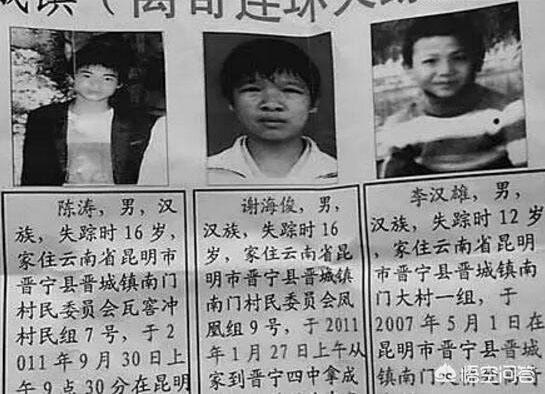 城镇（离奇连环失
陈涛，男，汉
族，失踪时 16 岁，
家住云南省昆明市
晋宁县晋城镇南门
村民委员会瓦窑冲
村民组 7 号，于 2
011 年 9 月 30 日上
午 9 点 30 分在昆明
谢海俊，男，
汉族，失踪时 16
岁，家住云南省昆
明市晋宁县晋城镇
南门村民委员会凤
凰组 9 号，于 2011
年 1 月 27 日上午从
家到晋宁四中拿成
李汉雄，男，
汉族，失踪时 12 岁
，家住云南省昆明
市晋宁县晋城镇南
门大村一组，于
2007 年 5 月 1 日在
昆明市晋宁县晋城
镇南门
悟空问答